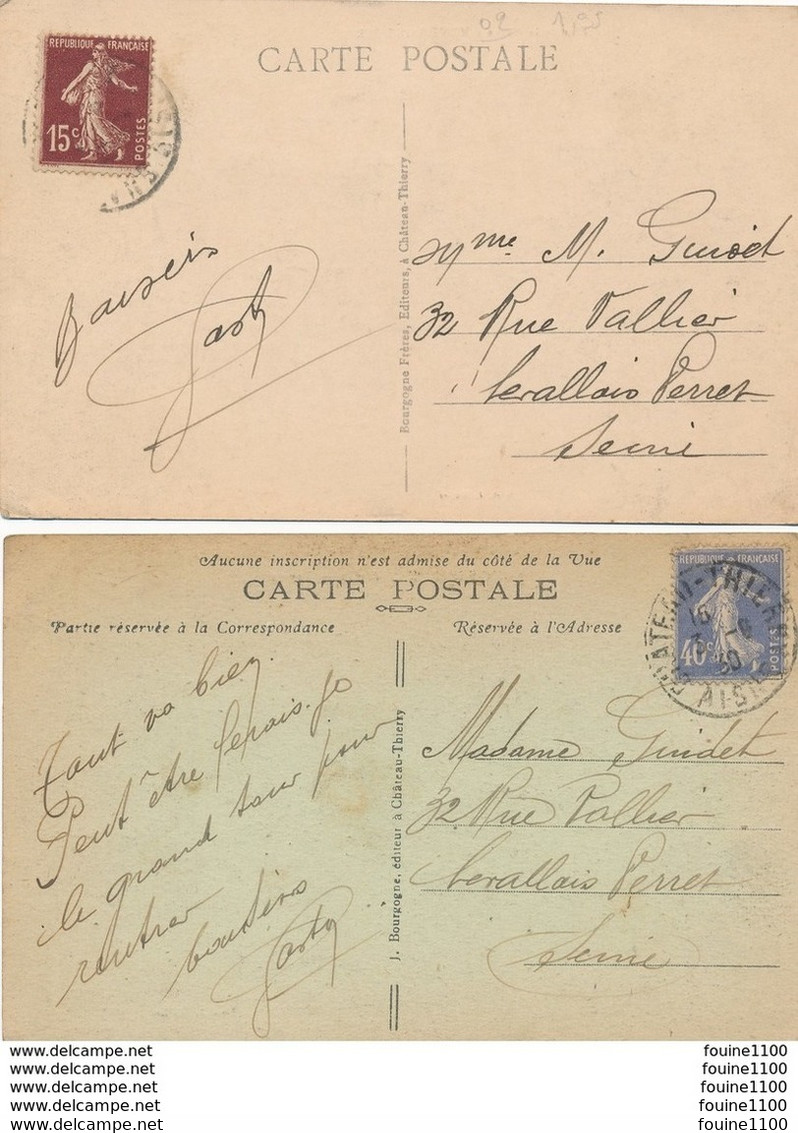 02 1,95
RÉPUBLIQUE FRANÇAISE
15c
POSTES
CARTE POSTALE
Baisers
Bourgogne Frères, Editeurs, à Château-Thierry
Mme M. Guidet
32 Rue Vallier
Levallois Perret
Seine
Aucune inscription n'est admise du côté de la Vue
CARTE POSTALE
Partie réservée à la Correspondance
Réservée à l'Adresse
RÉPUBLIQUE FRANÇAISE
40c
POSTES
CHATEAU-THIERRY
AISNE
Tout va bien.
Peut être ferais-je
le grand tour pour
rentrer
baisers
J. Bourgogne, éditeur à Château-Thierry
Madame Guidet
32 Rue Vallier
Levallois Perret
Seine
www.delcampe.net
www.delcampe.net
www.delcampe.net
www.delcampe.net
www.delcampe.net
fouine1100
fouine1100
fouine1100
fouine1100
fouine1100